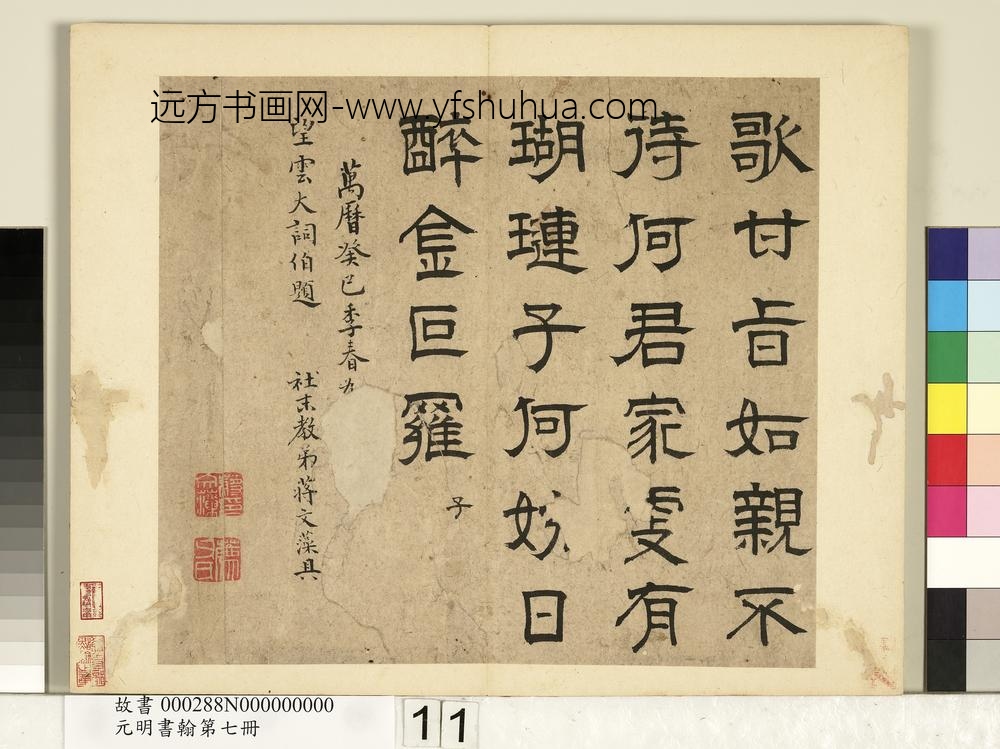 远方书画网-www.yfshuhua.com
歌甘旨如親不
待何君家叟有
瑚璉子何妨日
醉金叵羅
子
萬曆癸巳季春為
望雲大詞伯題 社末教弟蔣文藻具
故書 000288N000000000
元明書翰第七冊
11